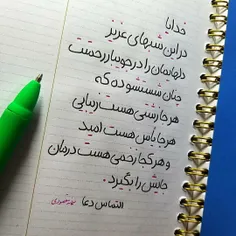 خدایا
در این شبهای عزیز
دلهایمان را در جویبار رحمتت
چنان شستشو ده که
هر جا زشتی هست زیبایی
هر جا یأس هست امید
و هر کجا زخمی هست درمان
جایش را بگیرد.
التماس دعا